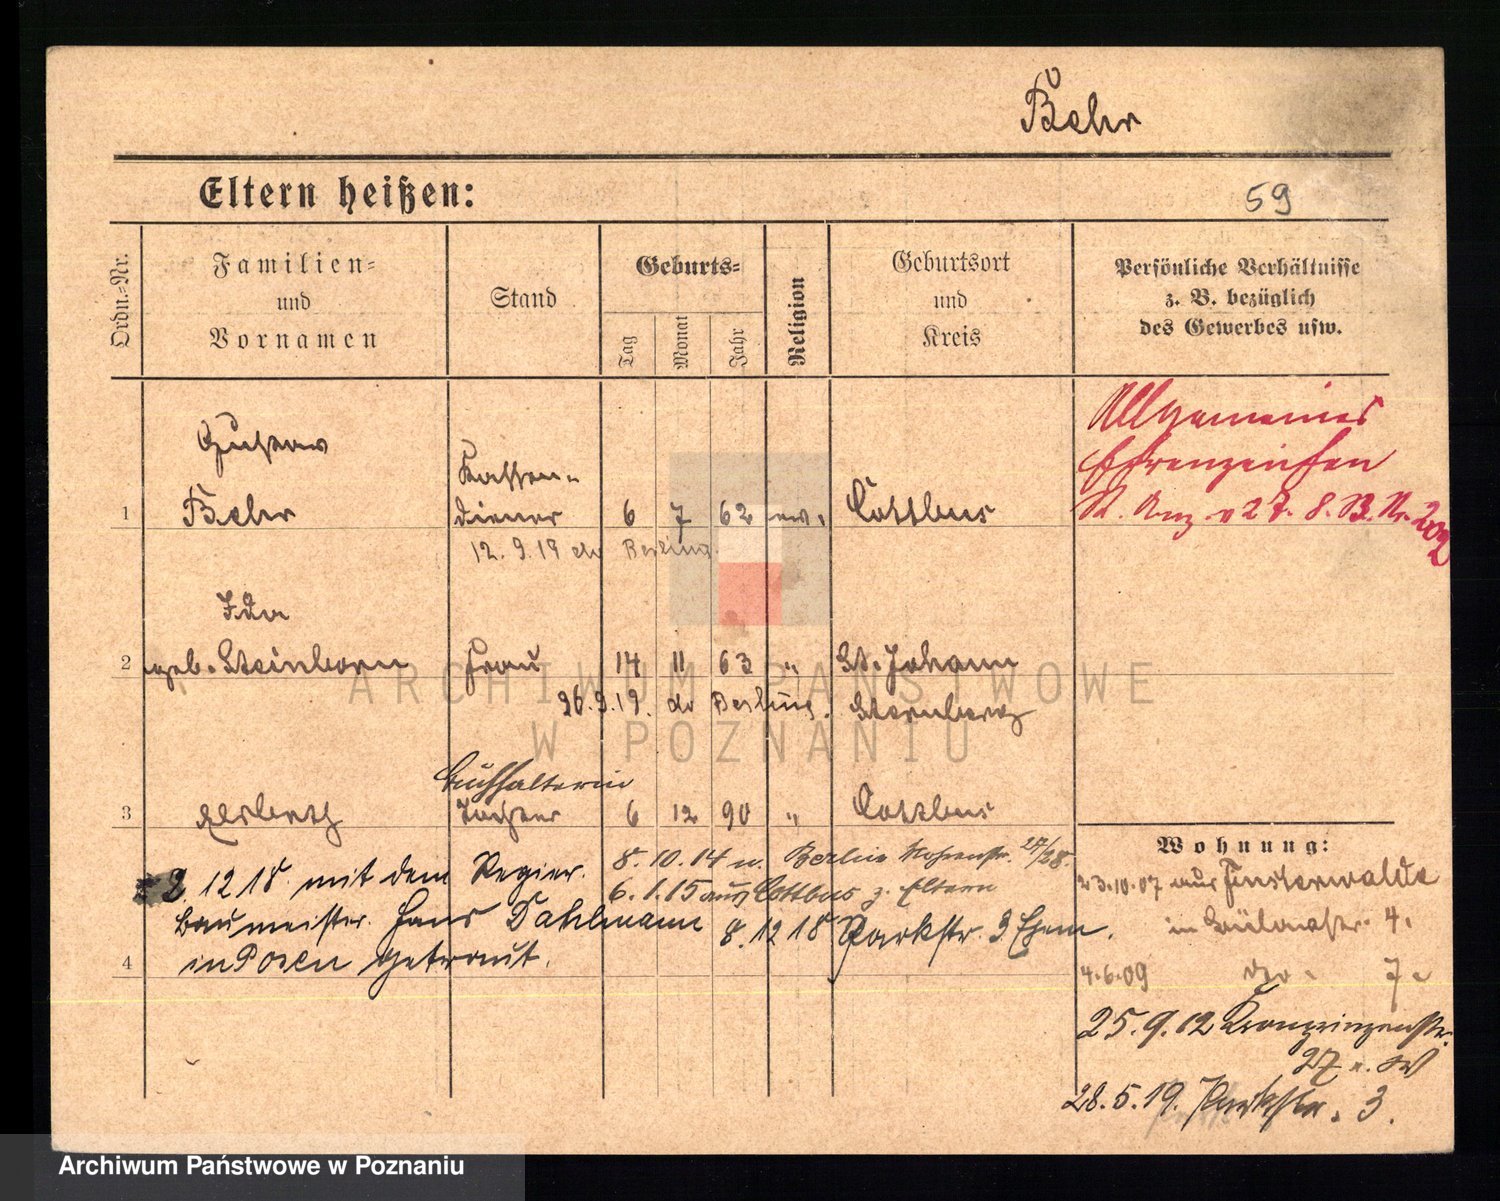 Behr
Eltern heißen:
59
Ordn.-Nr.
Familien-
und
Vornamen
Stand
Geburts-
Tag
Monat
Jahr
Religion
Geburtsort
und
Kreis
Persönliche Verhältnisse
z. B. bezüglich
des Gewerbes usw.
Gustav
1 Behr
Kassen-
diener 6 7 62 ev. Cottbus
12.9.19 ch Berlin
Allgemeines
Ehrenzeichen
St. Anz. v 27. 8. Nr. 202
Ida
2 geb. Steinborn Frau 14 11 63 " St. Johann
26.9.19. ch Berlin Sternberg
Buchhalterin
3 Elsbeth Tochter 6 12 90 " Cottbus
8.10.14 n. Berlin 27/28.
6.1.15 aus Cottbus z. Eltern
2 12 18 mit dem Regier.
Baumeister Hans Dahlmann 8.12 18 Parkstr. 3 Ehem.
4 in Posen getraut.
Wohnung:
23.10.07 aus Finsterwalde
in Bülowstr. 4.
4.6.09 do. 7.
25.9.12 Kronprinzenstr.
27
28.5.19. Parkstr. 3.
ARCHIWUM PAŃSTWOWE
W POZNANIU
Archiwum Państwowe w Poznaniu